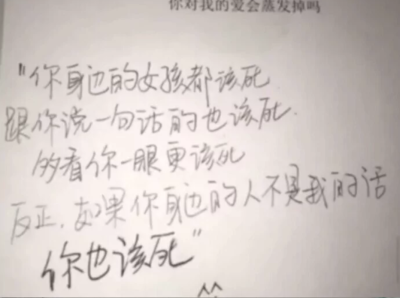 你对我的爱会蒸发掉吗
"你身边的女孩都该死
跟你说一句话的也该死.
多看你一眼更该死
反正,如果你身边的人不是我的话
你也该死"